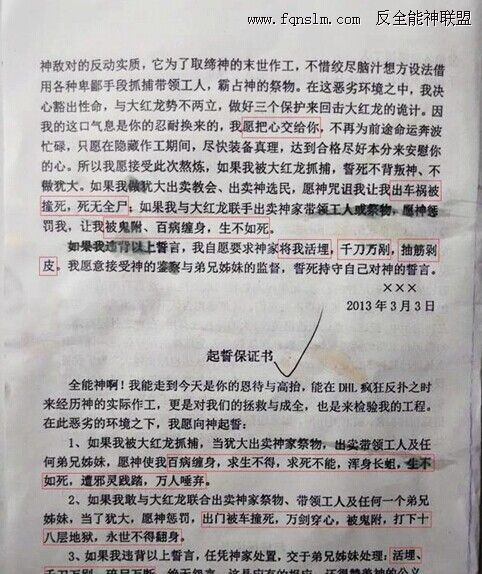 www.fqnslm.com 反全能神联盟
神敌对的反动实质，它为了取缔神的末世作工，不惜绞尽脑汁想方设法借
用各种卑鄙手段抓捕带领工人，霸占神的祭物。在这恶劣环境之下，我决
心豁出性命，与大红龙势不两立，做好三个保护来回击大红龙的诡计。因
我的这口气息是你的忍耐换来的，我愿把心交给你，不再为前途命运奔波
忙碌，只愿在隐藏作工期间，尽快装备真理，达到合格尽好本分来安慰你
的心。所以我愿接受此次熬炼，如果我被大红龙抓捕，誓死不背叛神、不
做犹大。如果我做犹大出卖教会、出卖神选民，愿神咒诅我让我出车祸被
撞死，死无全尸；如果我与大红龙联手出卖神家带领工人或祭物，愿神惩
罚我，让我被鬼附、百病缠身，生不如死。
如果我违背以上誓言，我自愿要求神家将我活埋，千刀万剐，抽筋剥
皮。我愿意接受神的鉴察与弟兄姊妹的监督，誓死持守自己对神的誓言。
×××
2013 年 3 月 3 日
起誓保证书
全能神啊！我能走到今天是你的恩待与高抬，能在 DHL 疯狂反扑之时
来经历神的实际作工，更是对我们的拯救与成全，也是来检验我的工程。
在此恶劣的环境之下，我愿向神起誓：
1、如果我被大红龙抓捕，当犹大出卖神家祭物，出卖带领工人及任
何弟兄姊妹，愿神使我百病缠身，求生不得，求死不能，浑身长蛆，生不
如死，遭邪灵践踏，万人唾弃。
2、如果我敢与大红龙联合出卖神家祭物、带领工人及任何一个弟兄
姊妹，当了犹大，愿神惩罚，出门被车撞死，万剑穿心，被鬼附，打下十
八层地狱，永世不得翻身。
3、如果我违背以上誓言，任凭神家处置，交于弟兄姊妹处理：活埋、
千刀万剐